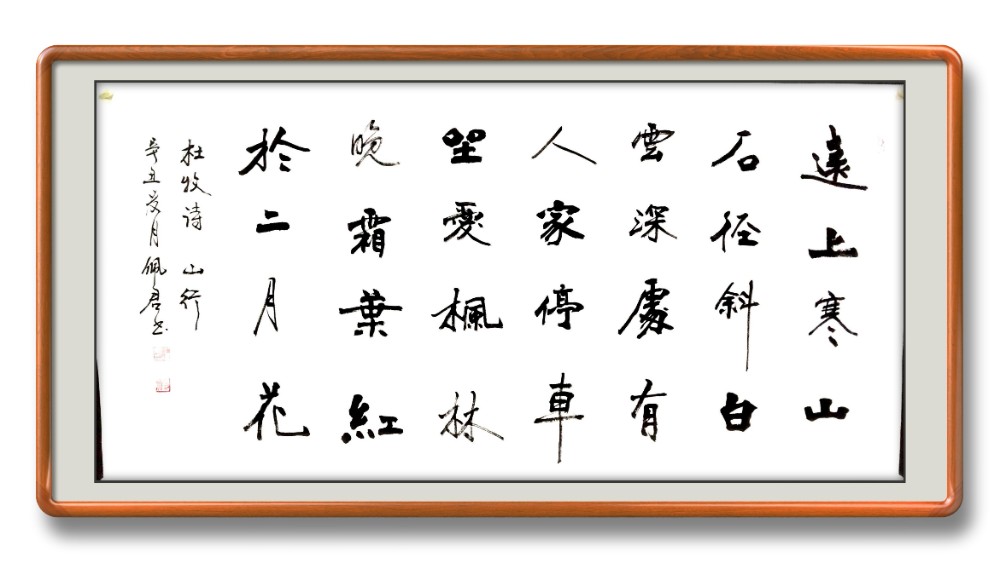 遠上寒山
石径斜白
雲深處有
人家停車
坐愛楓林
晚霜葉紅
於二月花
杜牧诗 山行
辛丑夏月佩君书